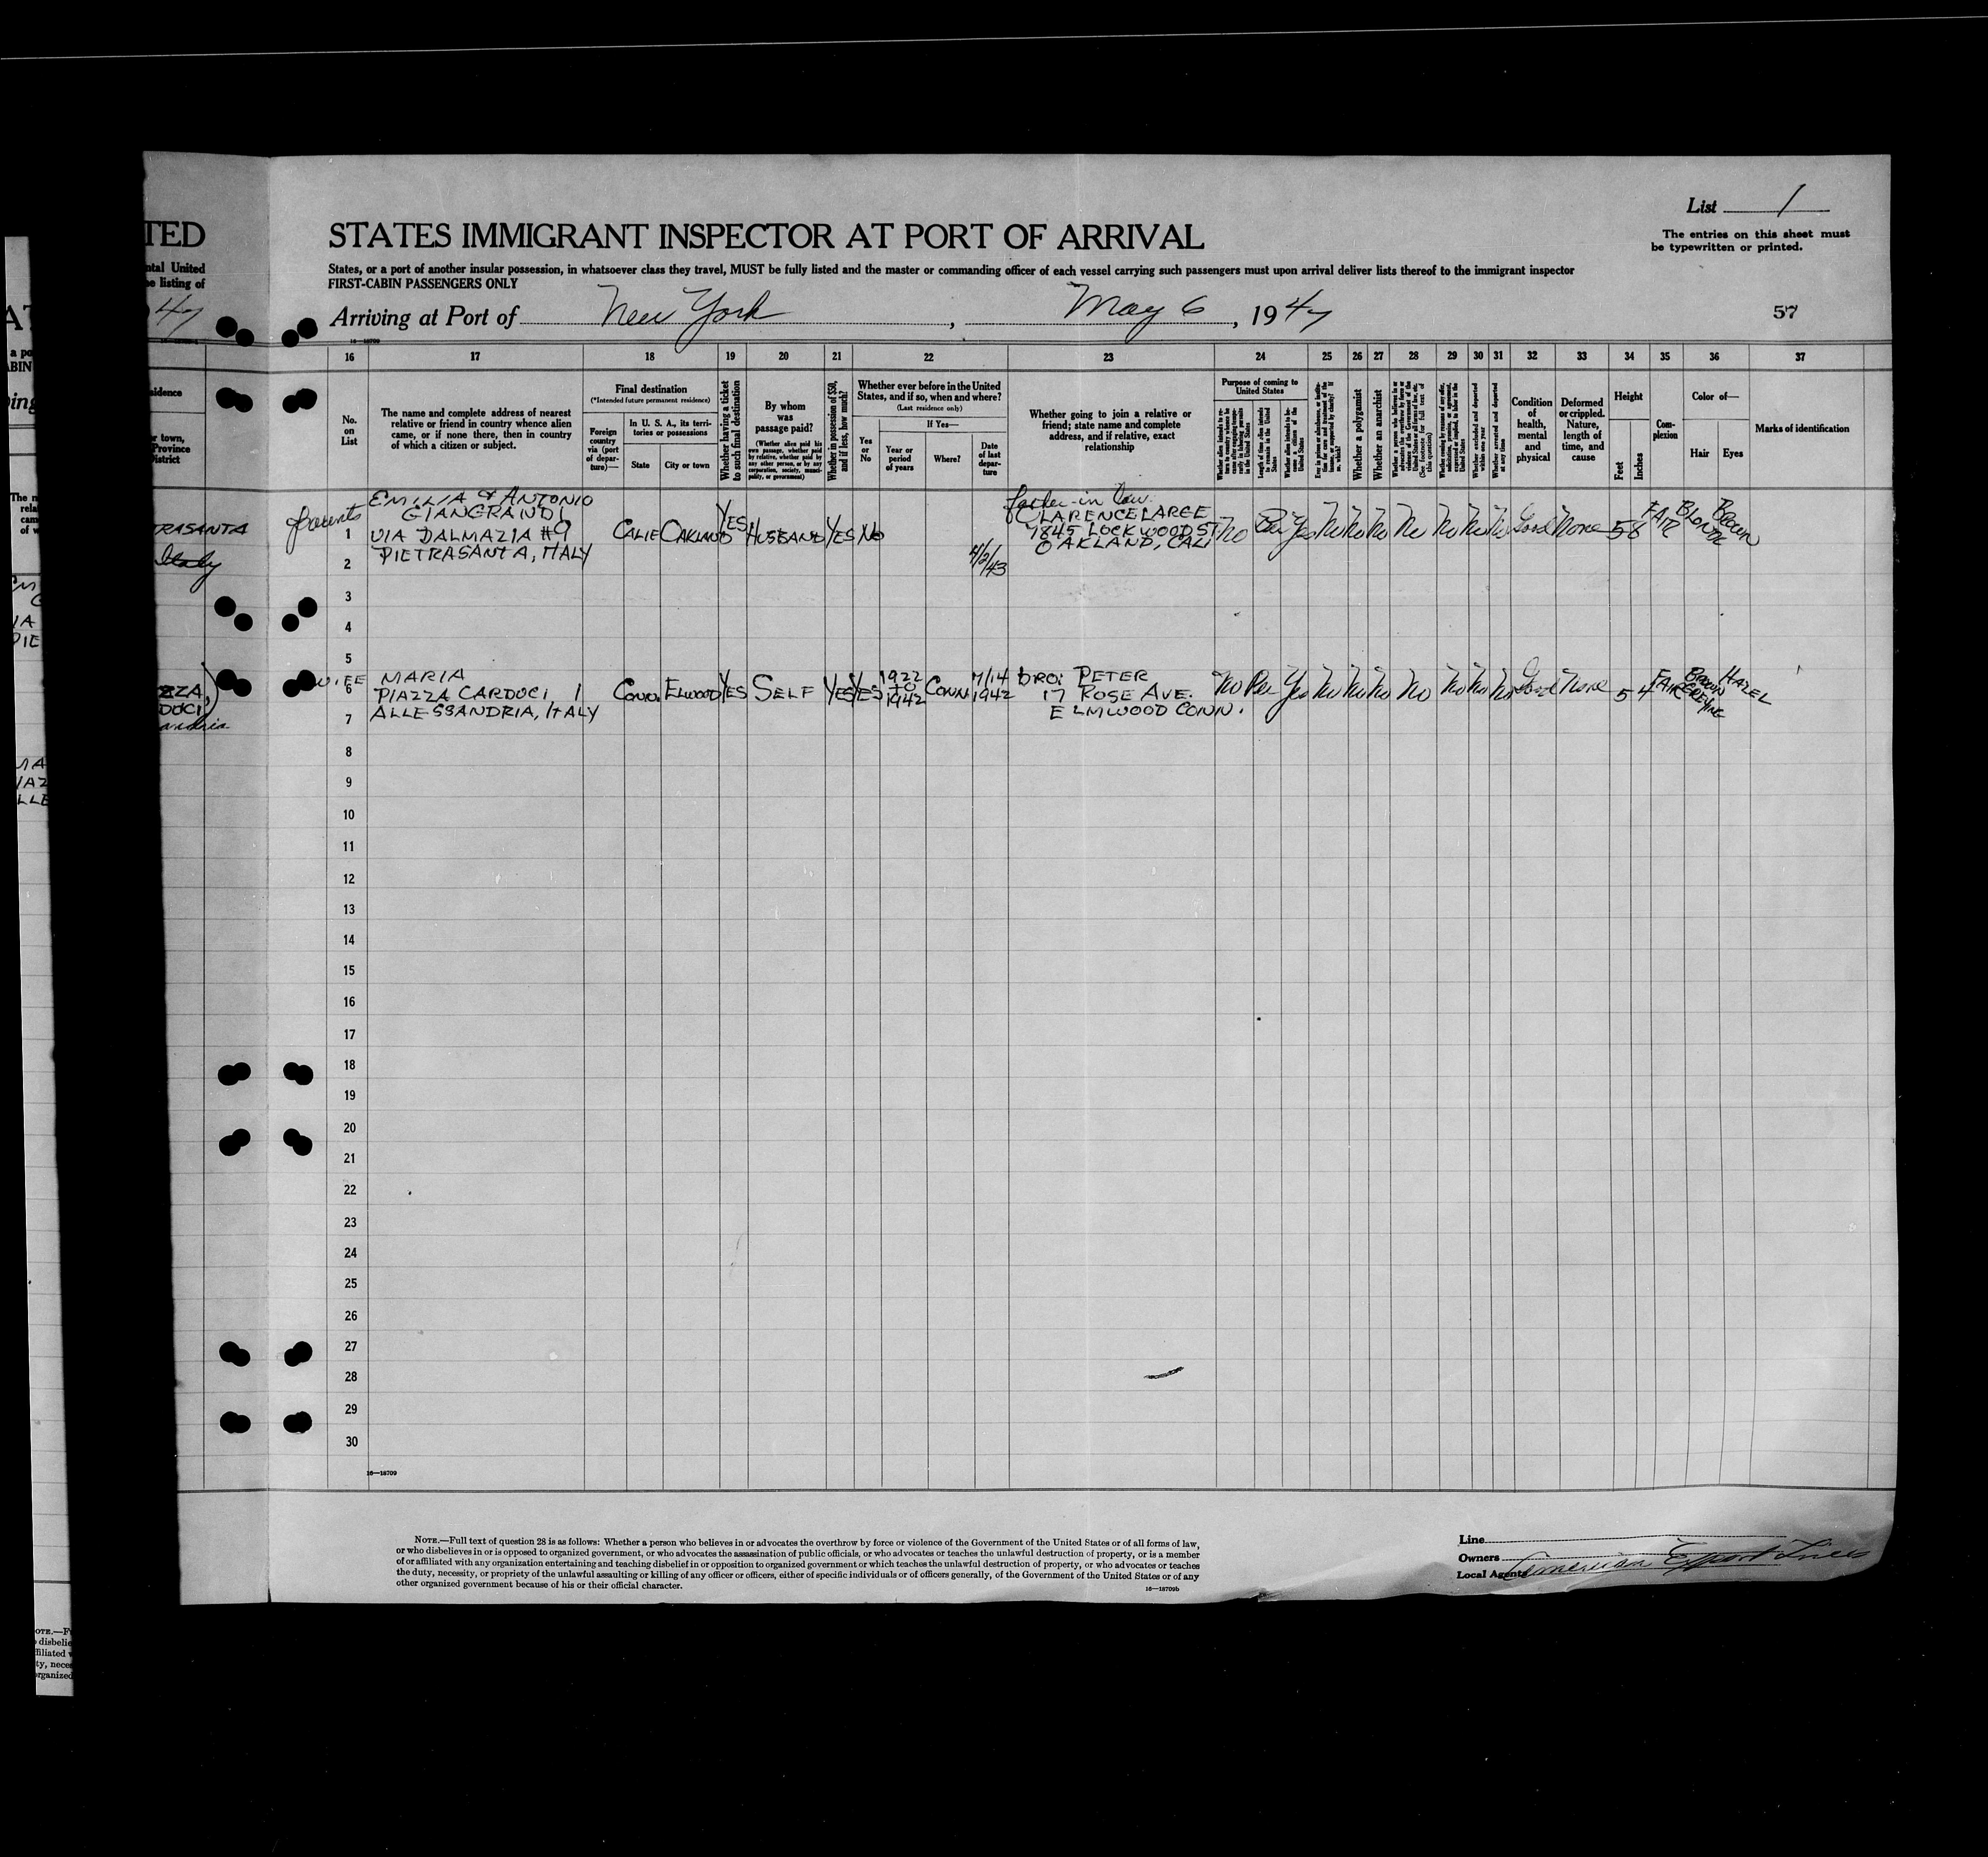 List 1
The entries on this sheet must
be typewritten or printed.
TED
STATES IMMIGRANT INSPECTOR AT PORT OF ARRIVAL
ntal United
e listing of
States, or a port of another insular possession, in whatsoever class they travel, MUST be fully listed and the master or commanding officer of each vessel carrying such passengers must upon arrival deliver lists thereof to the immigrant inspector
FIRST-CABIN PASSENGERS ONLY
47
Arriving at Port of New York, May 6, 1947
57
16—18709
16 17 18 19 20 21 22 23 24 25 26 27 28 29 30 31 32 33 34 35 36 37
No.
on
List
The name and complete address of nearest
relative or friend in country whence alien
came, or if none there, then in country
of which a citizen or subject.
Final destination
(*Intended future permanent residence)
Foreign
country
via (port
of depar-
ture)—
In U. S. A., its terri-
tories or possessions
State
City or town
Whether having a ticket
to such final destination
By whom
was
passage paid?
(Whether alien paid his
own passage, whether paid
by relative, whether paid by
any other person, or by any
corporation, society, munici-
pality, or government)
Whether in possession of $50,
and if less, how much?
Whether ever before in the United
States, and if so, when and where?
(Last residence only)
Yes
or
No
If Yes—
Year or
period
of years
Where?
Date
of last
depar-
ture
Whether going to join a relative or
friend; state name and complete
address, and if relative, exact
relationship
Purpose of coming to
United States
Whether a polygamist
Whether an anarchist
Whether arrested and deported
at any time
Condition
of
health,
mental
and
physical
Deformed
or crippled.
Nature,
length of
time, and
cause
Height
Feet
Inches
Com-
plexion
Color of—
Hair
Eyes
Marks of identification
parents
EMILIA & ANTONIO
GIANGRANDI
VIA DALMAZIA #9
PIETRASANTA, ITALY
1 CALIF OAKLAND YES HUSBAND YES No
4/2/43
father-in law
CLARENCE LARGE
7845 LOCKWOOD ST
OAKLAND, CALI
No Per Yes No No No No No No No Good None 5 8 FAIR BLONDE BROWN
TRASANTA
Italy
2
3
4
5
WIFE
6
MARIA
PIAZZA CARDUCI 1
ALLESSANDRIA, ITALY
CONN. ELWOOD YES SELF YES YES 1922
TO
1942 CONN 7/14
1942
bro: PETER
17 ROSE AVE.
ELMWOOD CONN.
No Per Yes No No No No No No No Good None 5 4 FAIR BROWN
GREYING HAZEL
7
8
9
10
11
12
13
14
15
16
17
18
19
20
21
22
23
24
25
26
27
28
29
30
16—18709
NOTE.—Full text of question 28 is as follows: Whether a person who believes in or advocates the overthrow by force or violence of the Government of the United States or of all forms of law,
or who disbelieves in or is opposed to organized government, or who advocates the assassination of public officials, or who advocates or teaches the unlawful destruction of property, or is a member
of or affiliated with any organization entertaining and teaching disbelief in or opposition to organized government or which teaches the unlawful destruction of property, or who advocates or teaches
the duty, necessity, or propriety of the unlawful assaulting or killing of any officer or officers, either of specific individuals or of officers generally, of the Government of the United States or of any
other organized government because of his or their official character.
16—18709b
Line
Owners
Local Agents American Export Lines